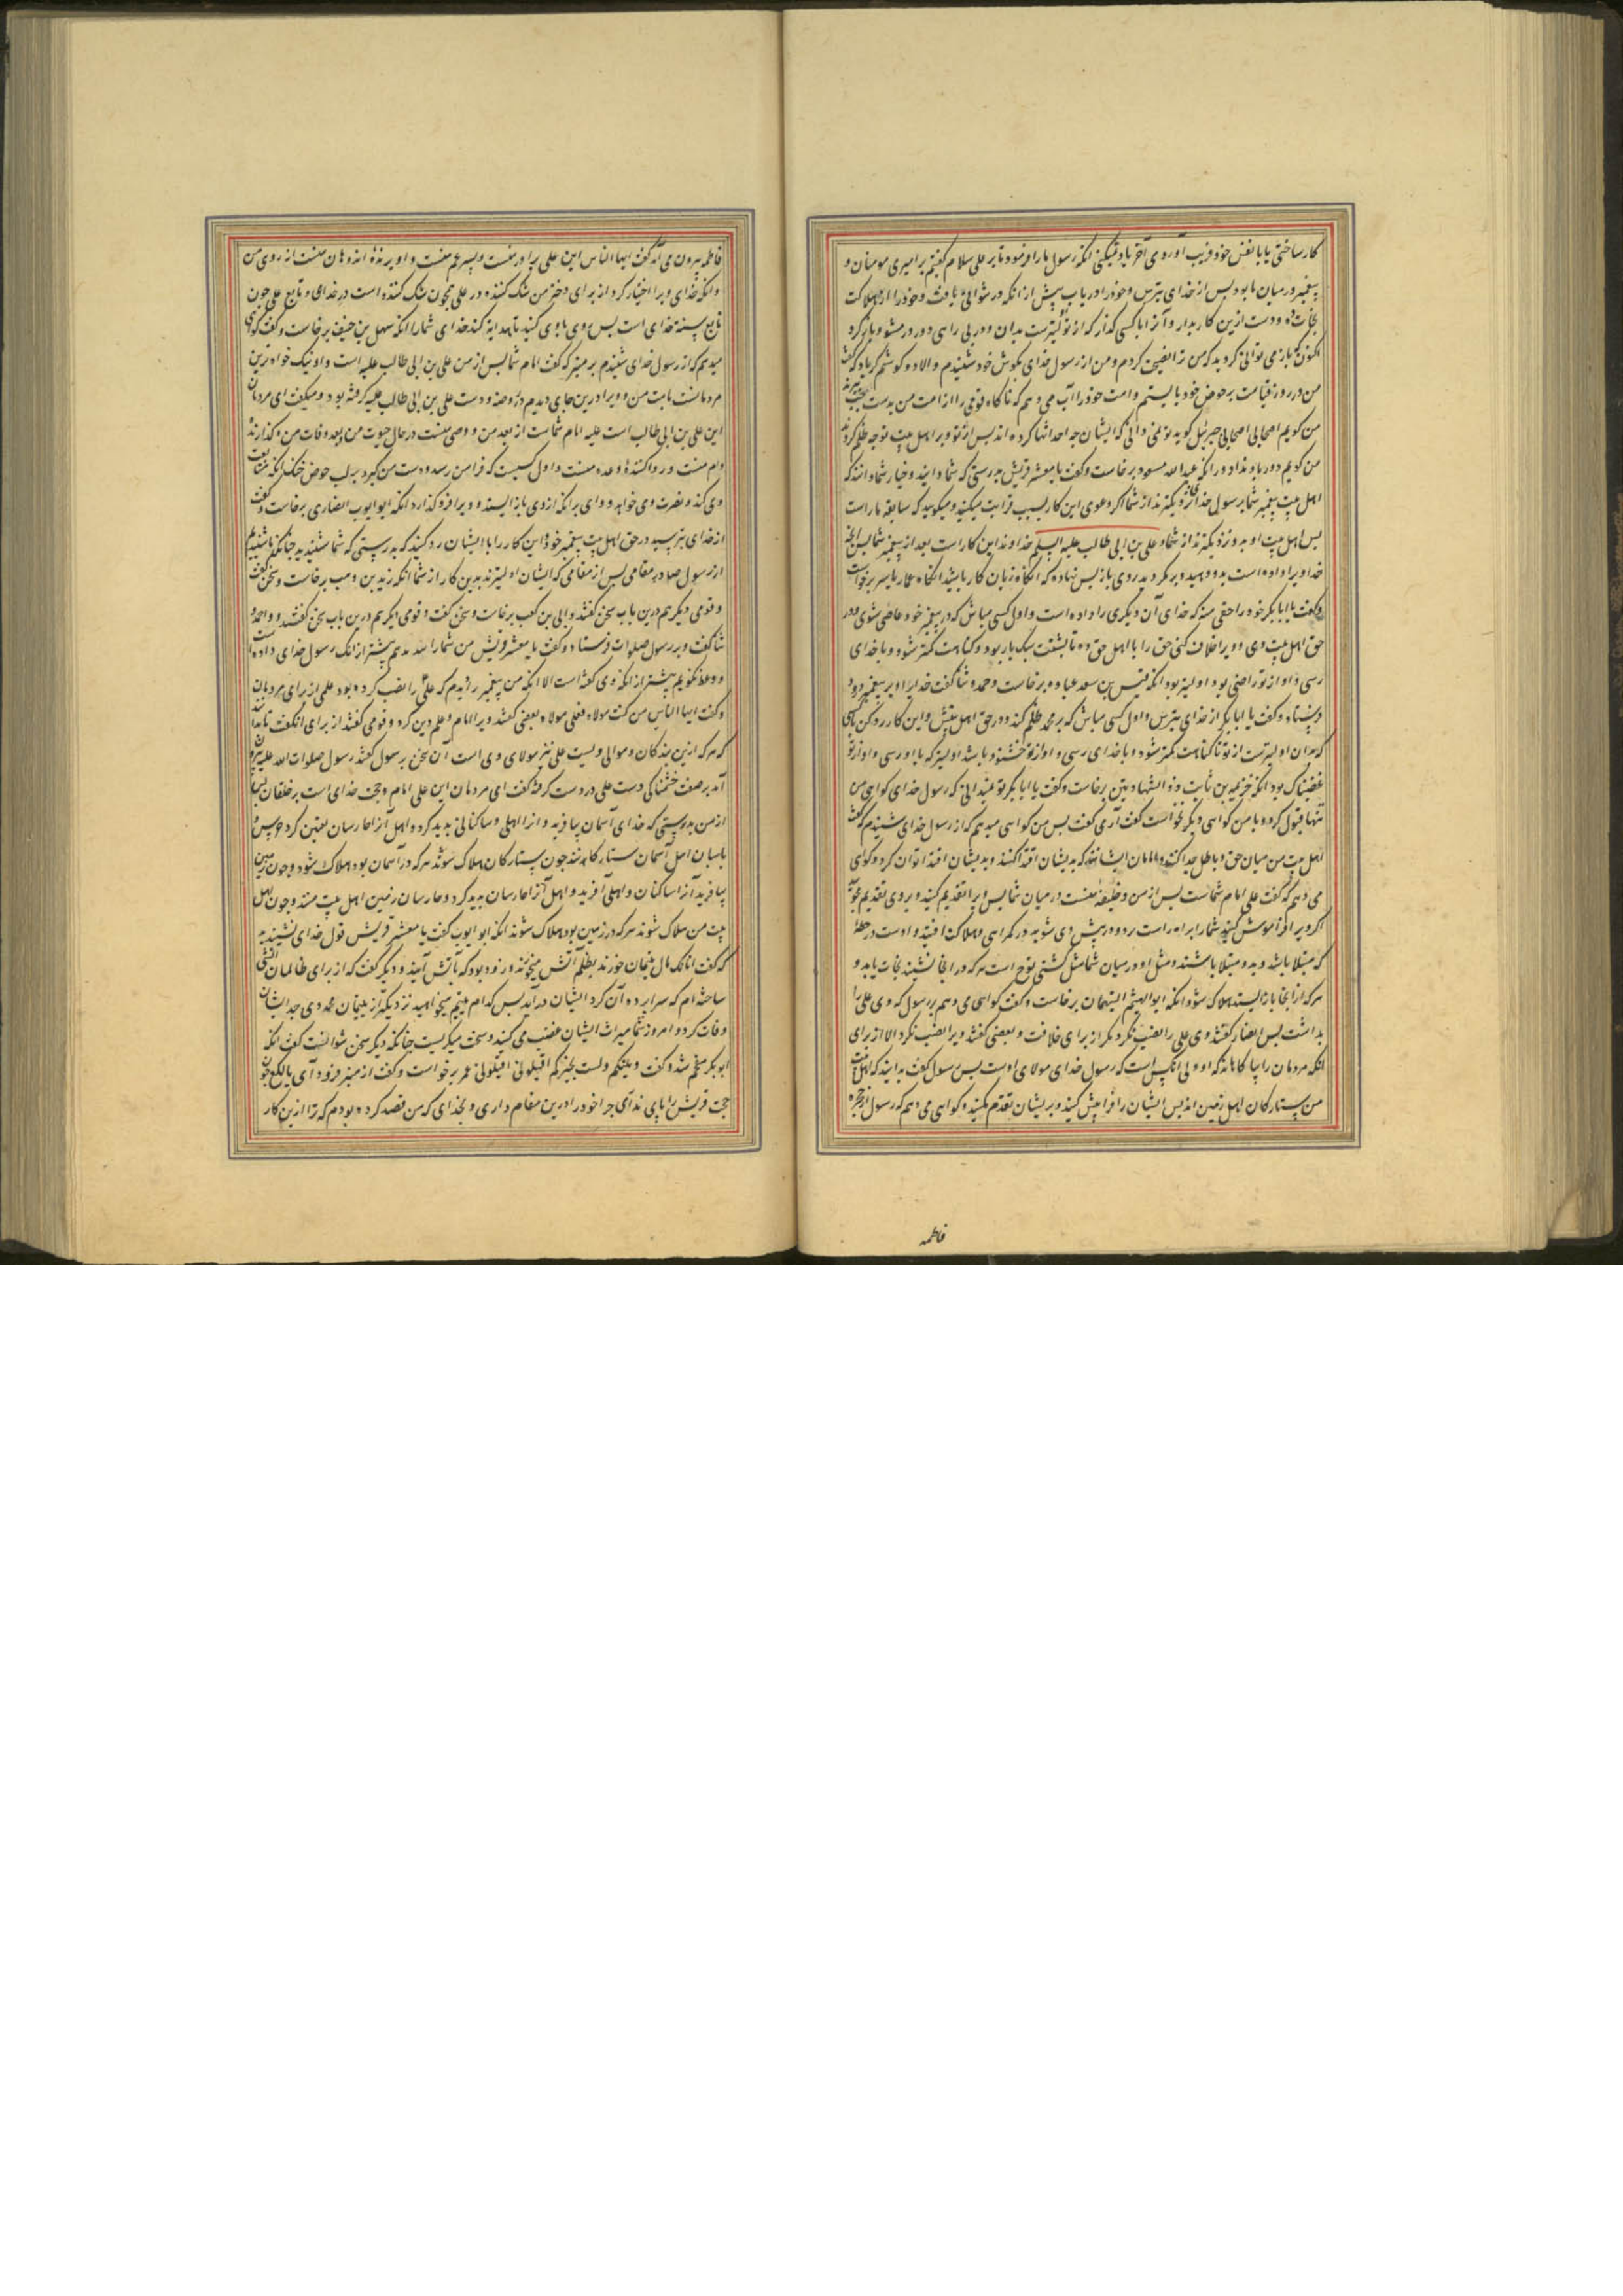 کار ساختی یا با نفس خود فریب آوردی آخر یاد نمیکنی انکه رسول ما را فرمود تا بر علی سلام کفتیم بر امیری مومنان و
پیغمبر در میان ما بود پس از خدای بترس و خود را دریاب پیش از انکه در نتوانی یافت و خود را از هلاکت
نجات ده و دست ازین کار بدار و آنرا با کسی کذار که از تو اولیترست بدان و در بی راهی دور در مشو و باز کرد
اکنون که باز می توانی کردید که من ترا نصیحت کردم و من از رسول خدای بکوش خود شنیدم و الا دو کوشم کر باد که کفت
من در روز قیامت بر حوض خود بایستم و امت خود را آب می دهم که ناکاه قومی را از امت من بدست
من کویم اصحابی اصحابی جبرئیل کوید تو نمی دانی که ایشان چه احداثها کرده اند پس از تو و بر اهل بیت تو چه ظلم کردند
من کویم دور باد دور انکه عبدالله مسعود برخاست و کفت یا معشر قریش بدرستی که شما دانید و خیار شما دانند که
اهل بیت پیغمبر شما بر رسول خدا نزدیکترند از شما اکر دعوی این کار بسبب قرابت میکنید و میکویید که سابقه ما راست
پس اهل بیت او بدو نزدیکترند از شما و علی بن ابی طالب علیه السلم خداوند این کار است بعد از پیغمبر شما پس آنچه
خدا ویرا داده است بدو دهید و بر مکردید روی باز پس نهاده که انکاه زیان کار باشید انکاه عمار یاسر برخواست
و کفت یا ابابکر خود را حقی منه که خدای آن دیکری را داده است و اول کسی مباش که در پیغمبر خود عاصی شوی و در
حق اهل بیت وی و ویرا خلاف کنی حق را با اهل حق ده تا پشتت سبک بار بود و کناهت کمتر شود و با خدای
رسی و او از تو راضی بود اولیتر بود انکه قیس بن سعد عباده برخاست و حمد و ثنا کفت خدایرا و بر پیغمبر درود
فرستاد و کفت یا ابابکر از خدای بترس و اول کسی مباش که بر محمد ظلم کند در حق اهل بیتش و این کار رد کن با
که بدان اولیترست از تو تا کناهت کمتر شود و با خدای رسی و او از تو خشنود باشد اولیتر که با او رسی و او از تو
غضبناک بود انکه خزیمه بن ثابت ذو الشهادتین برخاست و کفت یا ابابکر تو نمیدانی که رسول خدای کواهی من
تنها قبول کرد و با من کواهی دیکر نخواست کفت آری کفت پس من کواهی میدهم که از رسول خدای شنیدم که کفت
اهل بیت من میان حق و باطل جدا کنند و امامان ایشانند که بدیشان اقتدا کنند و بدیشان اقتدا توان کرد و کواهی
می دهم که کفت علی امام شماست پس از من و خلیفه منست در میان شما پس ویرا تقدیم کنید و بر وی تقدیم مجویید
اکر ویرا فراموش کنید شما را براه راست برد و در پیش وی شوید در کمراهی و هلاکت افتید و اوست در خطه
که مبتلا باشد و بدو مبتلا باشند و مثل او در میان شما مثل کشتی نوح است هر که در انجا نشیند نجات یابد و
هر که از انجا باز ایستد هلاک شود انکه ابو الهیثم التیهان برخاست و کفت کواهی می دهم بر رسول که وی علی را
بداشت پس انصار کفتند وی علی را نصب نکرد مکر از برای خلافت و بعضی کفتند ویرا نصب نکرد الا از برای
انکه مردمان را بیاکاهاند که او ولی انکس است که رسول خدای مولای اوست پس رسول کفت بدانید که اهل بیت
من ستارکان اهل زمین اند پس ایشان را فرا پیش کنید و بر ایشان تقدم مکنید و کواهی می دهم که رسول از حجره
فاطمه
فاطمه بیرون می آمد کفت ایها الناس این علی برادر منست و پسر عم منست و او برنده اندوهان منست از روی من
و انکه خدای ویرا اختیار کرد از برای دختر من شک کننده در علی همچون شک کننده است در خدای و تابع علی چون
تابع سنت خدای است پس پی روی وی کنید تا هدایه کند خدای شما را انکه سهل بن حنیف برخاست و کفت کواهی
میدهم که از رسول خدای شنیدم بر منبر که کفت امام شما پس از من علی بن ابی طالب علیه است و او نیک خواه ترین
مردمانست بابت من و ویرا درین جای دیدم در روضه و دست علی بن ابی طالب علیه کرفته بود و میکفت ای مردمان
این علی بن ابی طالب است علیه امام شماست از بعد من و وصی منست در حال حیوت من و بعد وفات من و کذارنده
وام منست و روا کننده وعده منست و اول کسیست که فرا من رسد و دست من کیرد بر لب حوض خنک انکه متابعت
وی کند و نصرت وی خواهد و وای بر انکه از وی باز ایستد و ویرا فرو کذارد انکه ابو ایوب انصاری برخاست و کفت
از خدای بترسید در حق اهل بیت پیغمبر خود و این کار را با ایشان رد کنید که بدرستی که شما شنیدید چنانکه ما شنیدیم
از رسول صلعم در مقامی پس از مقامی که ایشان اولیترند بدین کار از شما انکه زید بن وهب برخاست و سخن کفت
و قومی دیکر هم درین باب سخن کفتند و ابی بن کعب برخاست و سخن کفت و قومی دیکر هم درین باب سخن کفتند و احمد و
ثنا کفت و بر رسول صلوات فرستاد و کفت یا معشر قریش من شما را پند ندهم بیشتر از انک رسول خدای داده است
و وعظ نکویم بیشتر از انکه وی کفته است الا انکه من پیغمبر را دیدم که علی را نصب کرده بود علمی از برای مردمان
و کفت ایها الناس من کنت مولاه فعلی مولاه بعضی کفتند ویرا امام و علم دین کرد و قومی کفتند از برای آن کفت تا بدانند
که هر که ازین بندکان و موالی ویست علی نیز مولای وی است آن سخن بر رسول کفتند رسول صلوات الله علیه بیرون
آمد بر صفت خشمناکی دست علی در دست کرفته کفت ای مردمان این علی امام و حجت خدای است بر خلقان پس
از من بدرستی که خدای آسمان بیافرید و از اهلی و ساکنانی پدید کرد و اهل آنرا حارسان تعیین کرد و حرس و
پاسبان اهل آسمان ستارکانند چون ستارکان هلاک شوند هر که در آسمان بود هلاک شود و چون زمین
بیافرید آنرا ساکنان و اهلی آفرید و اهل آنرا حارسان پدید کرد و حارسان زمین اهل بیت منند و چون اهل
بیت من هلاک شوند هر که در زمین بود هلاک شوند انکه ابو ایوب کفت یا معشر قریش قول خدای نشنیدید
که کفت انانک مال یتیمان خورند بظلم آتش میخورند و زود بود که بآتش آیند و دیکر کفت که از برای ظالمان آتشی
ساخته ام که سرادره آن کرد ایشان درآید پس کدام یتیم میخواهید نزدیکتر از یتیمان محمد دی جد ایشان
وفات کرد و امروز شما میراث ایشان غصب می کنید و سخت میکریست چنانکه دیکر سخن نتوانست کفت انکه
ابوبکر متحیر شد و کفت ولیتکم و لست بخیرکم اقیلونی اقیلونی عمر برخواست و کفت از منبر فرود آی یا لکع چون
حجت قریش را پای نداری چرا خود را درین مقام داری و بخدای که من قصد کرده بودم که ترا ازین کار